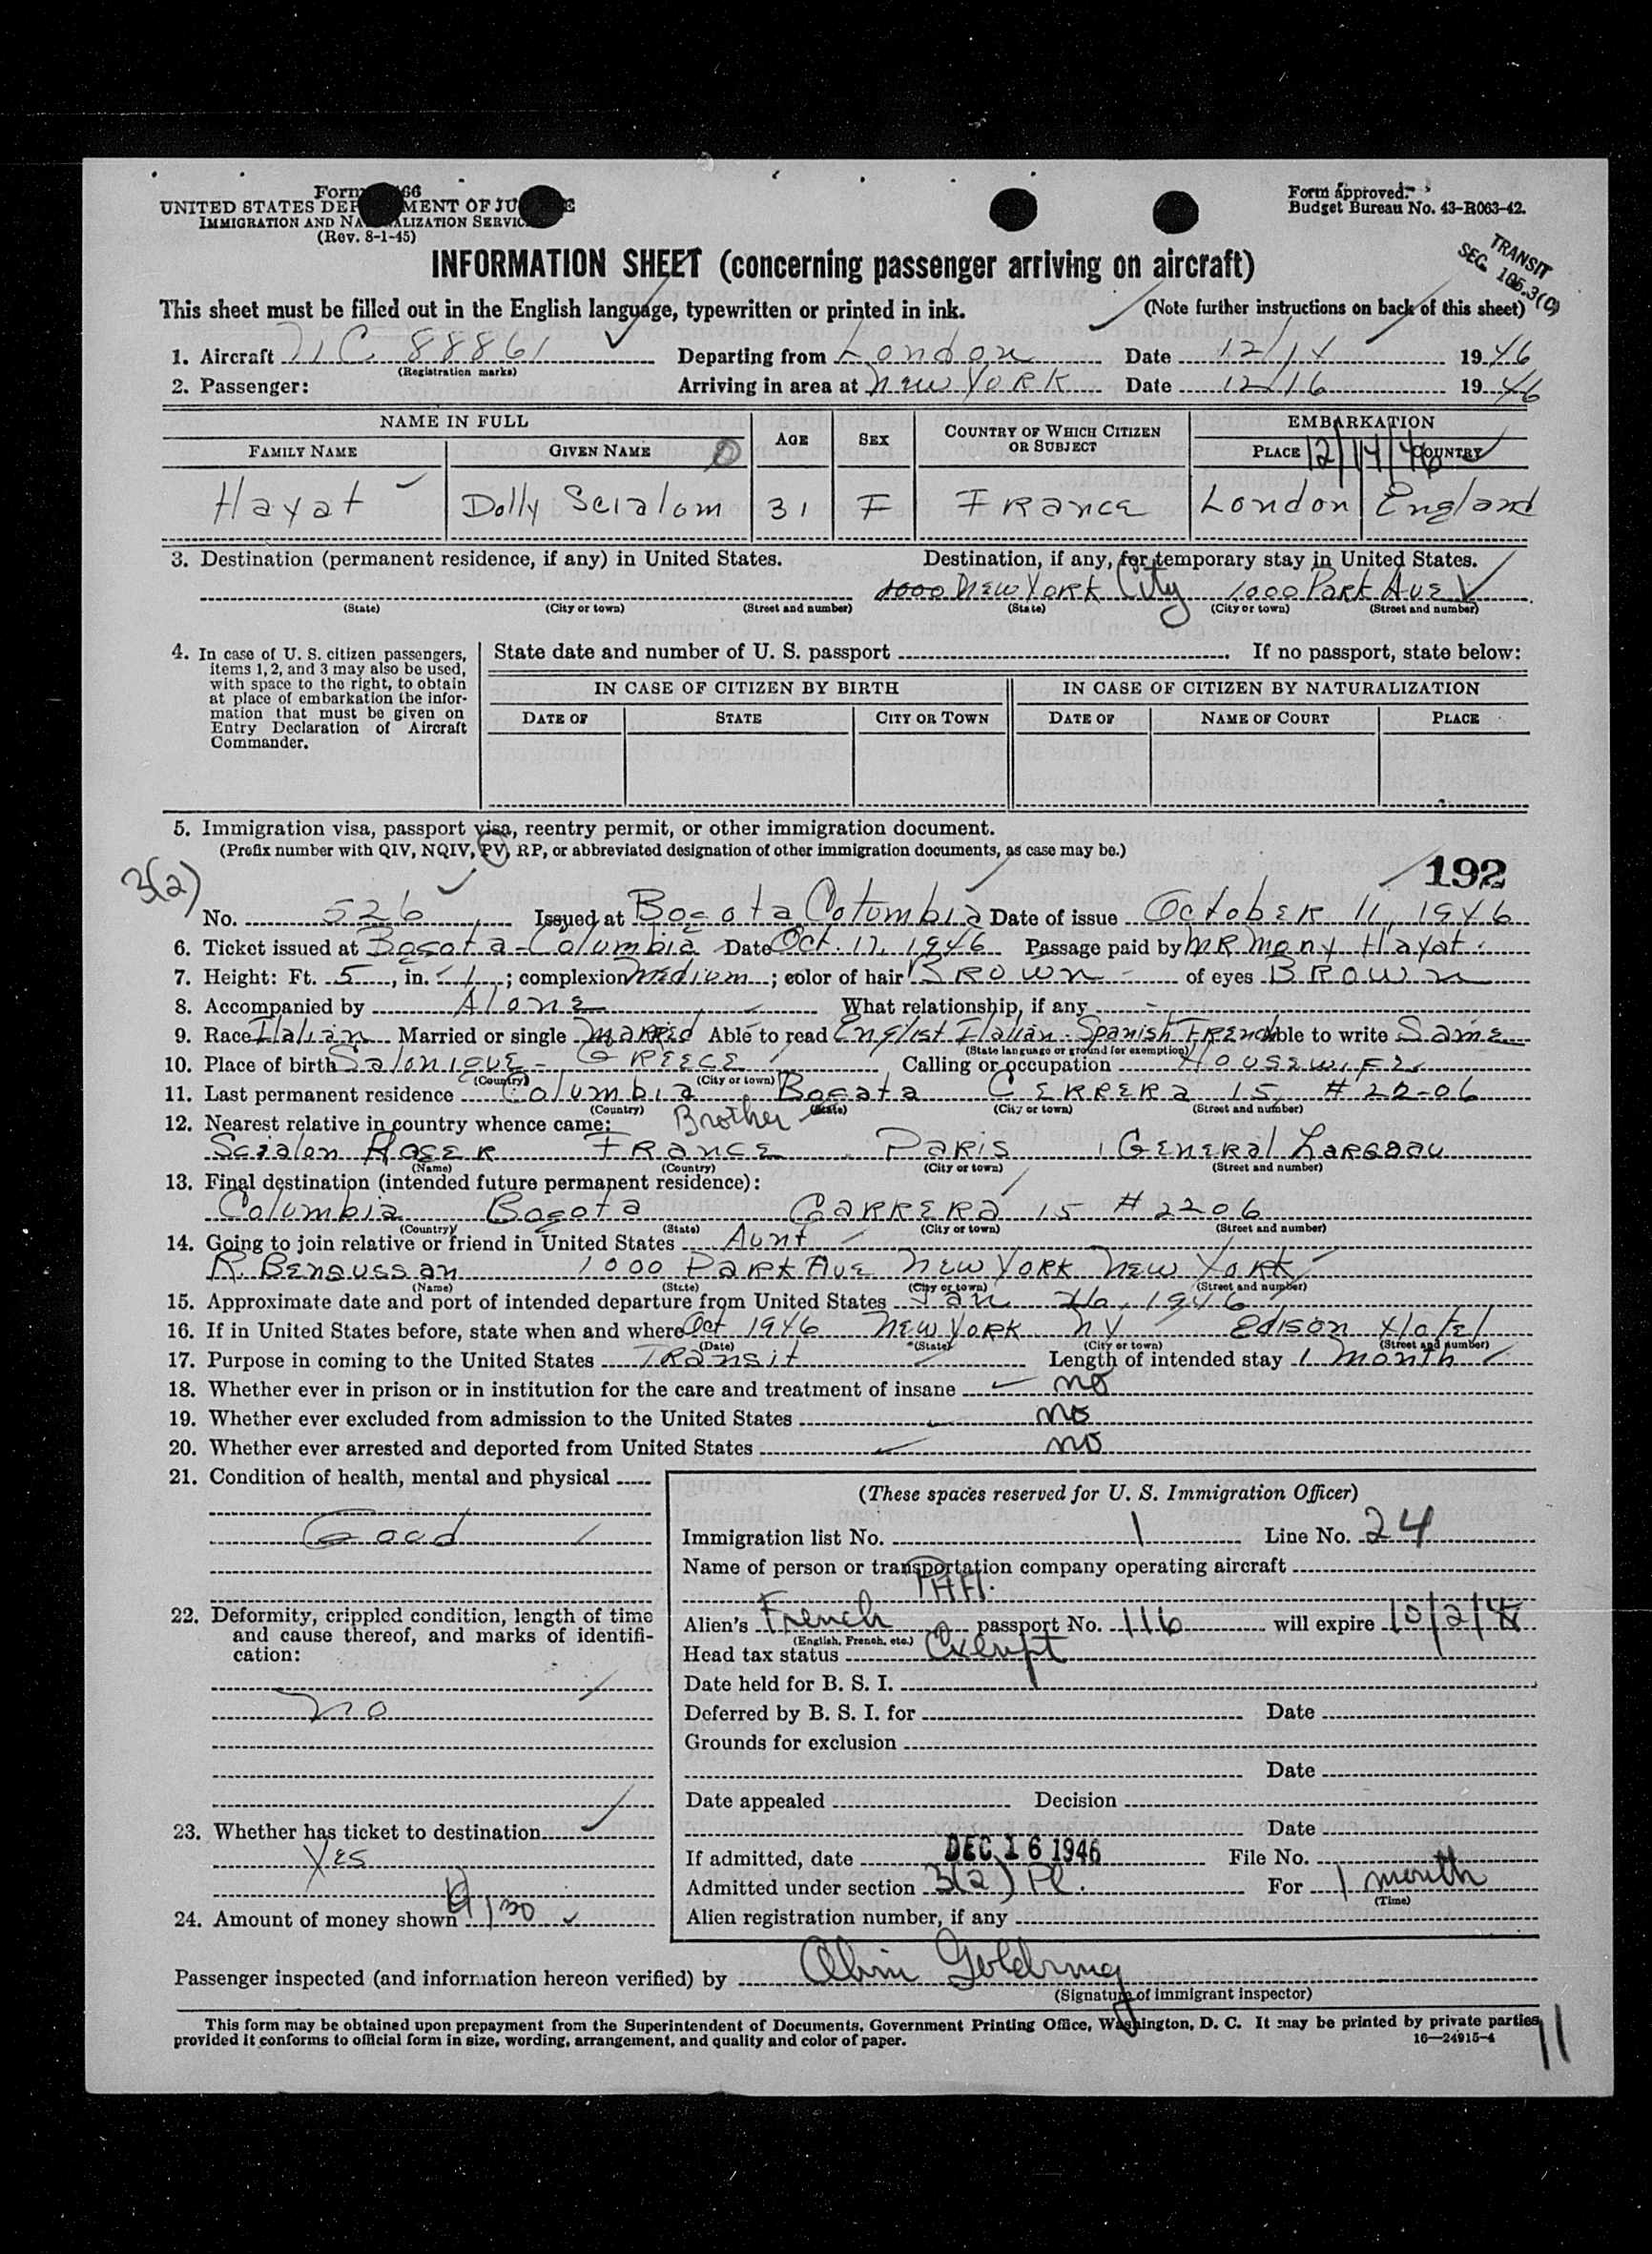 Form 66
UNITED STATES DEP MENT OF JU E
IMMIGRATION AND NA ALIZATION SERVIC
(Rev. 8-1-45)
Form approved.
Budget Bureau No. 43-R063-42.
TRANSIT
SEC. 165.3(C)
INFORMATION SHEET (concerning passenger arriving on aircraft)
This sheet must be filled out in the English language, typewritten or printed in ink. (Note further instructions on back of this sheet)
1. Aircraft NC 88861 Departing from London Date 12/14 1946
(Registration marks)
2. Passenger: Arriving in area at New York Date 12/16 1946
NAME IN FULL AGE SEX COUNTRY OF WHICH CITIZEN OR SUBJECT EMBARKATION
FAMILY NAME GIVEN NAME PLACE 12/14/46 COUNTRY
Hayat Dolly Scialom 31 F France London England
3. Destination (permanent residence, if any) in United States. Destination, if any, for temporary stay in United States.
1000 New York City 1000 Park Ave
(State) (City or town) (Street and number) (State) (City or town) (Street and number)
4. In case of U. S. citizen passengers, items 1, 2, and 3 may also be used, with space to the right, to obtain at place of embarkation the information that must be given on Entry Declaration of Aircraft Commander.
State date and number of U. S. passport If no passport, state below:
IN CASE OF CITIZEN BY BIRTH IN CASE OF CITIZEN BY NATURALIZATION
DATE OF STATE CITY OR TOWN DATE OF NAME OF COURT PLACE
5. Immigration visa, passport visa, reentry permit, or other immigration document.
(Prefix number with QIV, NQIV, PV, RP, or abbreviated designation of other immigration documents, as case may be.)
192
3(2)
No. 526 Issued at Bogota Columbia Date of issue October 11, 1946
6. Ticket issued at Bogota-Columbia Date Oct. 12, 1946 Passage paid by MR Mony Hayat
7. Height: Ft. 5, in. 1; complexion Medium; color of hair Brown of eyes Brown
8. Accompanied by Alone What relationship, if any -
9. Race Italian Married or single Married Able to read Englist Italian Spanish French Able to write Same
(State language or ground for exemption)
10. Place of birth Salonique - Greece Calling or occupation Housewife
(Country) (City or town)
11. Last permanent residence Columbia Bogata Cerrera 15, # 22-06
(Country) (State) (City or town) (Street and number)
12. Nearest relative in country whence came: Brother
Scialon Roger France Paris 1 General Largeau
(Name) (Country) (City or town) (Street and number)
13. Final destination (intended future permanent residence):
Columbia Bogota Carrera 15 # 2206
(Country) (State) (City or town) (Street and number)
14. Going to join relative or friend in United States Aunt
R. Benoussan 1000 Park Ave New York New York
(Name) (State) (City or town) (Street and number)
15. Approximate date and port of intended departure from United States Jan 16, 1946
16. If in United States before, state when and where Oct 1946 New York NY Edison Hotel
(Date) (State) (City or town) (Street and number)
17. Purpose in coming to the United States Transit Length of intended stay 1 Month
18. Whether ever in prison or in institution for the care and treatment of insane no
19. Whether ever excluded from admission to the United States no
20. Whether ever arrested and deported from United States no
21. Condition of health, mental and physical
Good
22. Deformity, crippled condition, length of time and cause thereof, and marks of identification:
No
23. Whether has ticket to destination
Yes
24. Amount of money shown 130
(These spaces reserved for U. S. Immigration Officer)
Immigration list No. 1 Line No. 24
Name of person or transportation company operating aircraft
PAA.
Alien's French passport No. 116 will expire 10/2/48
(English, French, etc.)
Head tax status Exempt
Date held for B. S. I.
Deferred by B. S. I. for Date
Grounds for exclusion
Date
Date appealed Decision
Date
If admitted, date DEC 16 1946 File No.
Admitted under section 3(2) Pl. For 1 month
(Time)
Alien registration number, if any
Passenger inspected (and information hereon verified) by Goldring
(Signature of immigrant inspector)
This form may be obtained upon prepayment from the Superintendent of Documents, Government Printing Office, Washington, D. C. It may be printed by private parties
provided it conforms to official form in size, wording, arrangement, and quality and color of paper. 16—24915-4
11